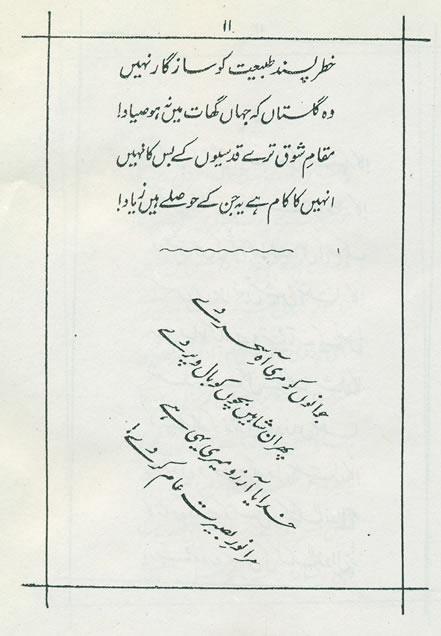 ۱۱
خطر پسند طبیعت کو ساز گار نہیں
وہ گلستاں کہ جہاں گھات میں نہ ہو صیاد!
مقامِ شوق ترے قدسیوں کے بس کا نہیں
انہیں کا کام ہے یہ جن کے حوصلے ہیں زیاد!
جوانوں کو مری آہِ سحر دے
پھر ان شاہیں بچوں کو بال و پر دے
خدایا آرزو میری یہی ہے
مرا نورِ بصیرت عام کر دے!